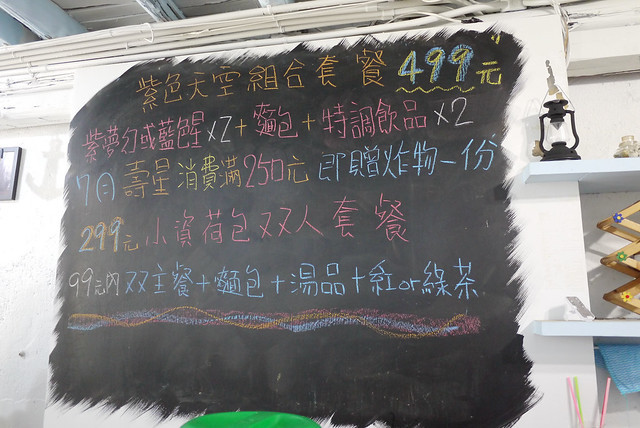 紫色天空組合套餐 499元
紫夢幻或藍醒x2+麵包+特調飲品x2
7月壽星消費滿250元即贈炸物一份
299元小資荷包双人套餐
99元內双主餐+麵包+湯品+紅or綠茶